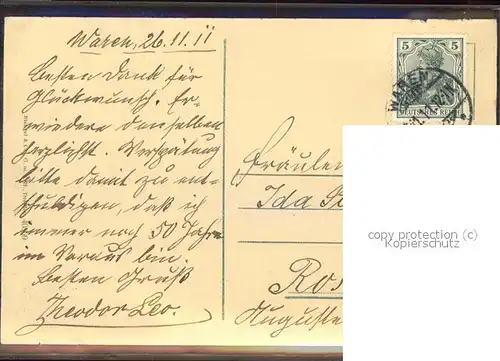 Waren, 26.11.11
Besten Dank für
Glückwunsch. Er-
wiedere denselben
herzlichst. Verspätung
bitte damit zu ent-
schuldigen, daß ich
immer noch 50 Jahre
im Voraus bin.
Besten Gruß
Theodor Leo.
5 5
DEUTSCHES REICH
WAREN
Fräulein
Ida
Ros
Auguste
copy protection (c)
Kopierschutz